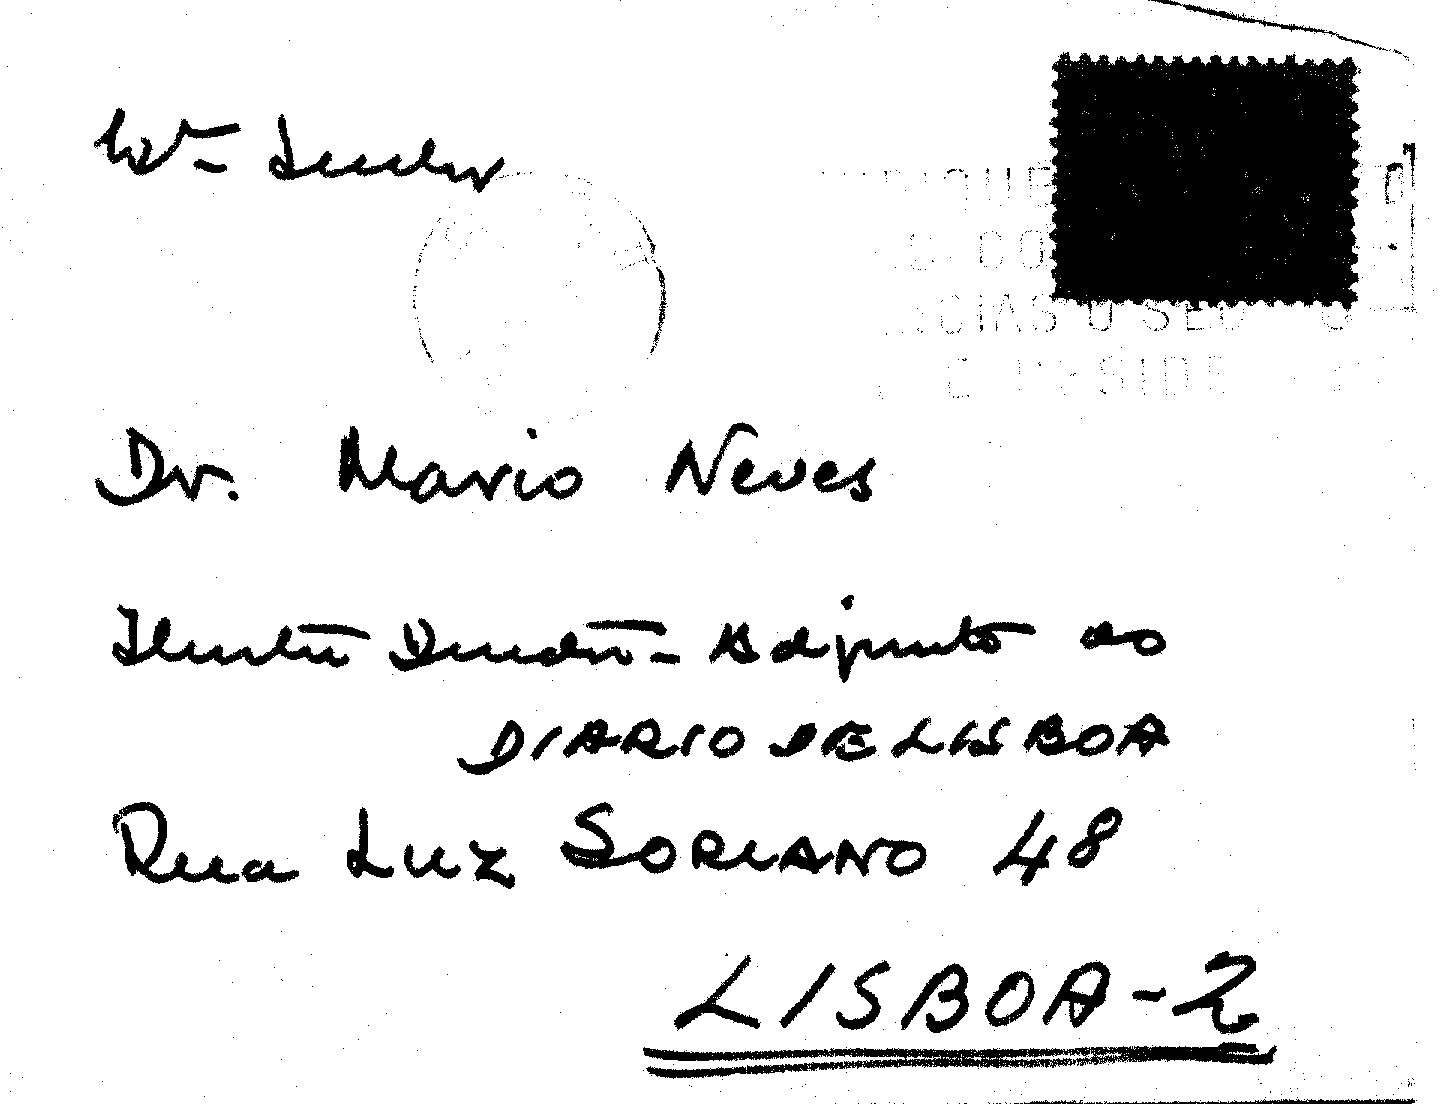 Exmo Senhor
Dr. Mario Neves
Ilustre Director-Adjunto do
DIARIO DE LISBOA
Rua Luz SORIANO 48
LISBOA-2